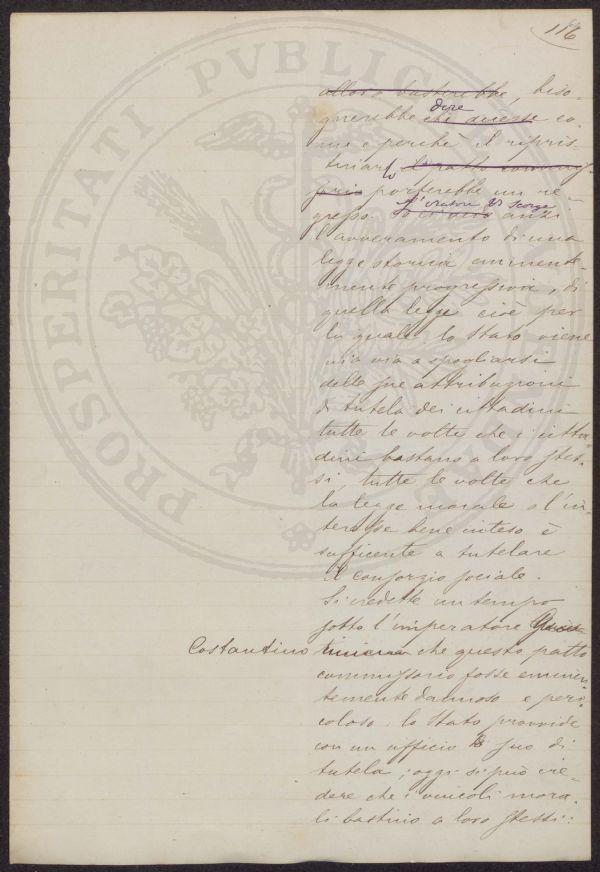 116
PROSPERITATI PVBLICAE
allora basterebbe, biso-
gnerebbe che dicesse dire co-
me e perchè il ripris-
tinarlo il patto commis-
sario porterebbe un re-
gresso. L'oratore vi scorge anzi
l'avveramento di una
legge storica eminente-
mente progressiva, di
quella legge cioè per
la quale lo Stato viene
via via a spogliarsi
delle sue attribuzioni
di tutela dei cittadini
tutte le volte che i citta-
dini bastano a loro stes-
si, tutte le volte che
la legge morale o l'in-
teresse bene inteso è
sufficente a tutelare
il consorzio sociale.
Si credette un tempo
sotto l'imperatore
Costantino che questo patto
commissorio fosse eminen-
temente dannoso e peri-
coloso, lo Stato provvide
con un ufficio suo di
tutela; oggi si può cre-
dere che i vincoli mora-
li bastino a loro stessi: